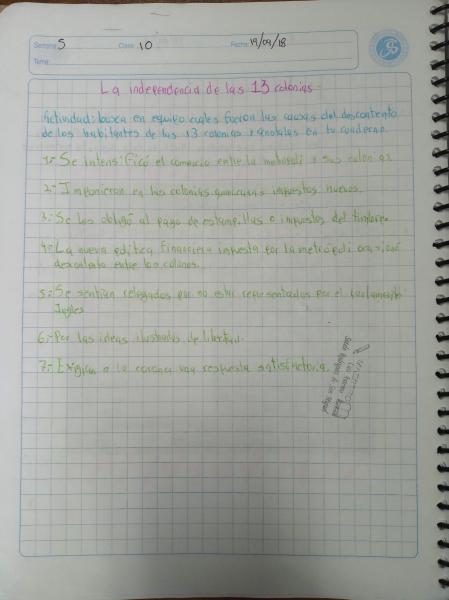 Semana: 5 Clase: 10 Fecha: 19/09/18
Tema:
La independencia de las 13 colonias
Actividad: busca en equipo cuales fueron las causas del descontento
de los habitantes de las 13 colonias y anotalas en tu cuaderno.
1.- Se intensificó el comercio entre la metropoli y sus colonias.
2.- Impusieron en las colonias americanas impuestos nuevos.
3.- Se les obligó al pago de estampillas o impuestos del timbre.
4.- La nueva política financiera impuesta por la metrópoli ocasionó
descontento entre los colonos.
5.- Se sentían relegados por no estar representados por el parlamento
Ingles
6.- Por las ideas ilustradas de libertad.
7.- Exigian a la corona una respuesta satisfactoria.